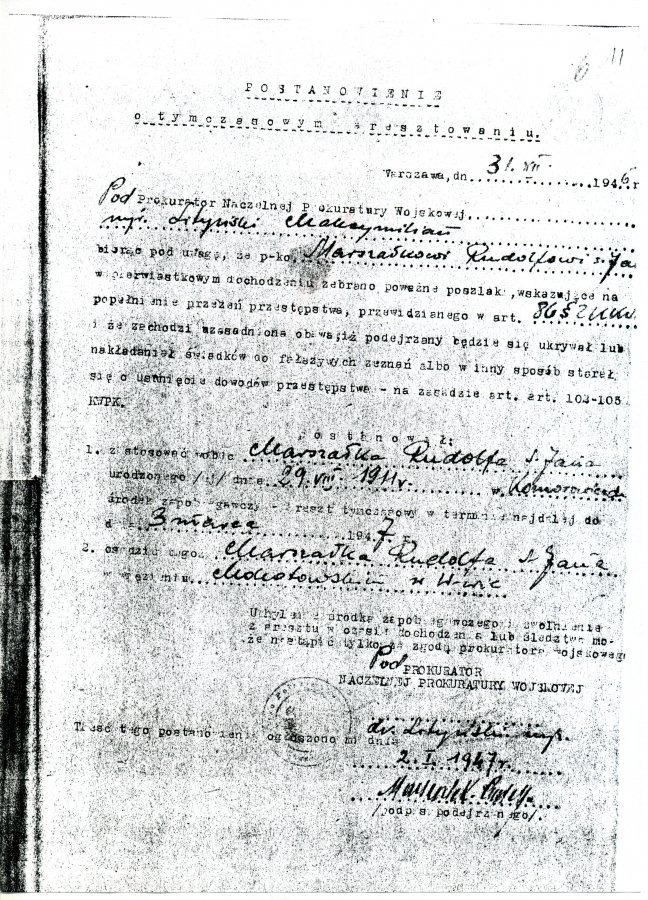 11
POSTANOWIENIE
o tymczasowym aresztowaniu.
Warszawa, dn 31. XII. 1946 r
Pod Prokurator Naczelnej Prokuratury Wojskowej
mjr. Lityński Maksymilian
biorąc pod uwagę, że p-ko, Marszałkowi Rudolfowi s. Ja
w pierwiastkowym dochodzeniu zebrano poważne poszlaki, wskazujące na
popełnienie przezeń przestępstwa, przewidzianego w art. 86 § 2
i że zachodzi uzasadniona obawa, iż podejrzany będzie się ukrywał lub
nakłaniał świadków do fałszywych zeznań albo w inny sposób starał
się o usunięcie dowodów przestępstwa - na zasadzie art. art. 102-105
KWPK.
postanowił:
1. zastosować wobec Marszałka Rudolfa s. Jana
urodzonego /ej/ dnia 29. VIII 1911 r. w
środek zapobiegawczy - areszt tymczasowy w terminie najdalej do
dnia 3 marca 1947 r.
2. osadzić tegoż Marszałka Rudolfa s. Jana
w więzieniu Mokotowskim w W-wie
Uchylenie środka zapobiegawczego i zwolnienie
z aresztu w czasie dochodzenia lub śledztwa mo-
że nastąpić tylko za zgodą prokuratora wojskowego
Pod PROKURATOR
NACZELNEJ PROKURATURY WOJSKOWEJ
dr. Lityński mjr.
Treść tego postanowienia ogłoszono mi dnia
2. I. 1947 r.
Marszałek Rudolf
/podpis podejrzanego/.